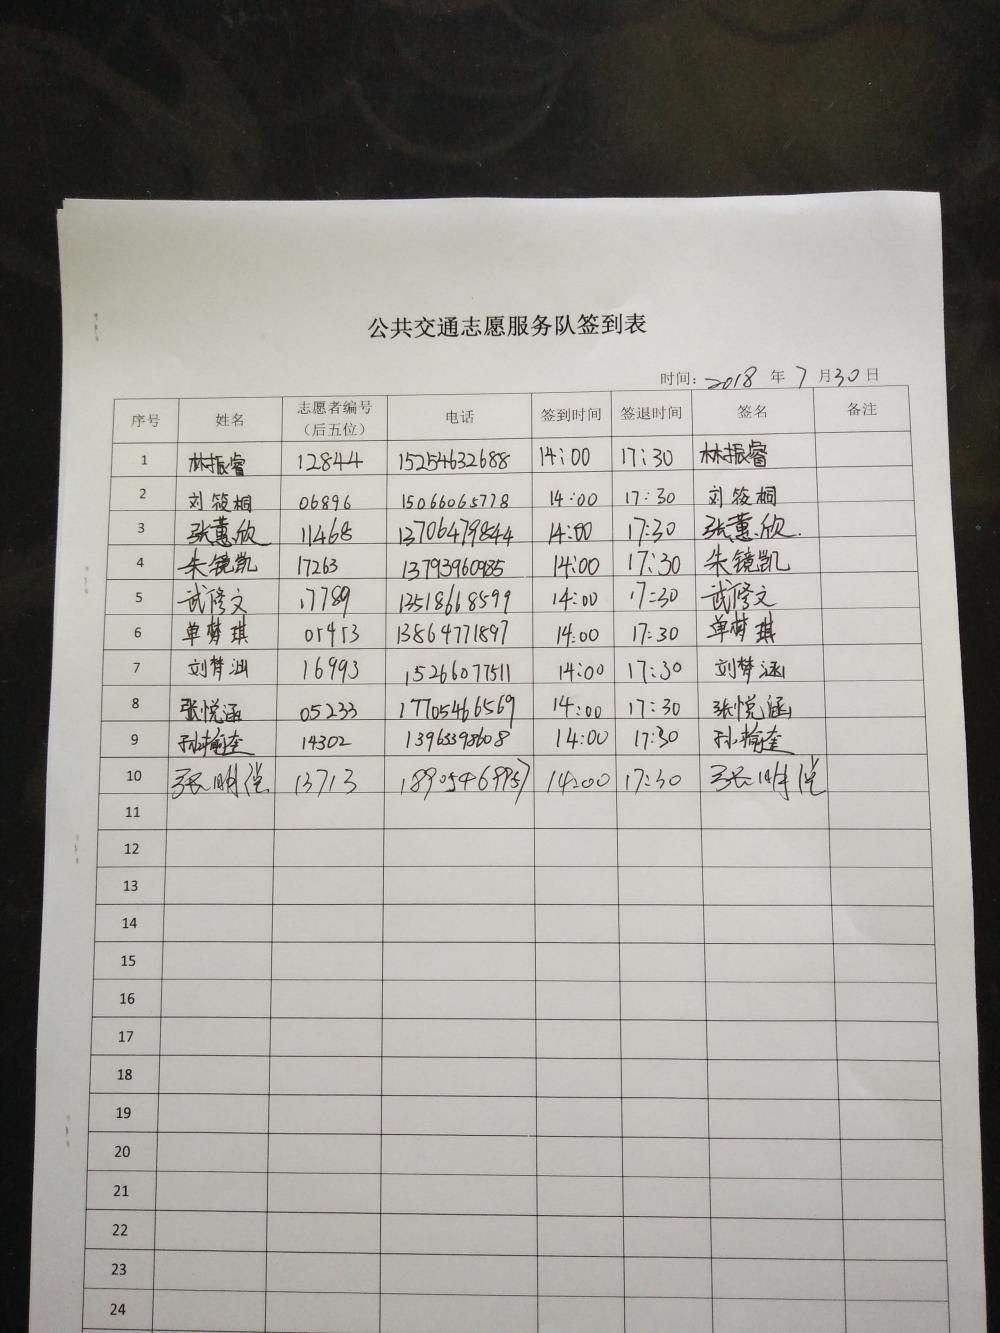 公共交通志愿服务队签到表
时间: 2018 年 7 月 30 日
序号 姓名 志愿者编号（后五位） 电话 签到时间 签退时间 签名 备注
1 林振睿 12844 15254632688 14:00 17:30 林振睿
2 刘筱桐 06896 15066065778 14:00 17:30 刘筱桐
3 张蕙欣 11468 13706479844 14:00 17:30 张蕙欣
4 朱镜凯 17263 13793960985 14:00 17:30 朱镜凯
5 武修文 17789 13518668599 14:00 17:30 武修文
6 单梦琪 05453 13864771897 14:00 17:30 单梦琪
7 刘梦涵 16993 15266077511 14:00 17:30 刘梦涵
8 张悦涵 05233 17705466569 14:00 17:30 张悦涵
9 孙榆奎 14302 13963398608 14:00 17:30 孙榆奎
10 张明 13713 14:00 17:30 张明
11
12
13
14
15
16
17
18
19
20
21
22
23
24